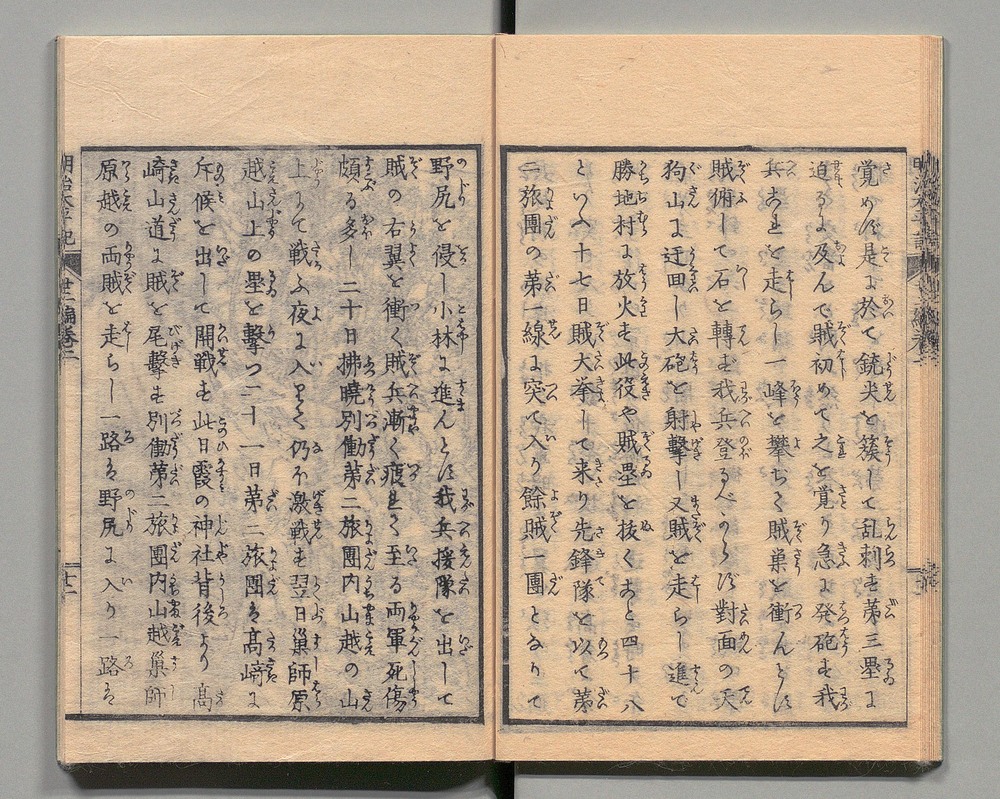 覚めず是に於て銃尖を簇して乱刺す第三塁に
迫るに及んで賊初めて之を覚り急に発砲す我
兵之を走らし一峰を攀ぢて賊巣を衝んとす
賊俯して石を轉ず我兵登るべからず對面の天
狗山に迂囬し大砲を射撃し又賊を走らし進で
勝地村に放火す此役や賊塁を抜くこと四十八
といへり十七日賊大挙して来り先鋒隊を以て第
二旅團の第一線に突て入り餘賊一團となりて
野尻を侵し小林に進んとす我兵援隊を出して
賊の右翼を衝く賊兵漸く疲れて至る両軍死傷
頗る多し二十日拂曉別働第二旅團内山越の山
上にて戦ふ夜に入りて仍ホ激戦す翌日巣師原
越山上の塁を撃つ二十一日第二旅團は高﨑に
斥候を出して開戦す此日霞の神社背後より高
崎山道に賊を尾撃す別働第二旅團内山越巣師
原越の両賊を走らし一路は野尻に入り一路は
明治太平記
廿二編巻二
十二